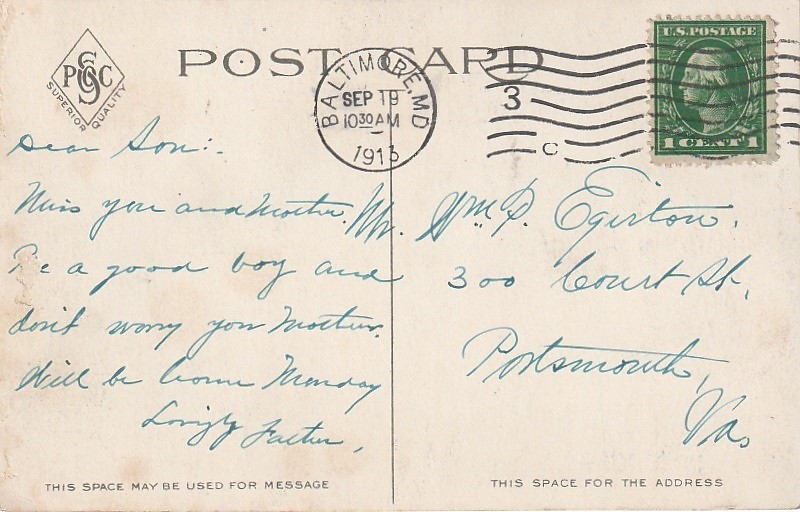 POST CARD
P S C
SUPERIOR QUALITY
BALTIMORE, MD
SEP 19
10 30 AM
1913
3
C
U.S. POSTAGE
1 CENT 1
Dear Son:-
Miss you and Mother.
Be a good boy and
don't worry you Mother.
Will be home Monday
Lovingly Father,
Mr. Wm. P. Egerton.
300 Court St.,
Portsmouth,
Va,
THIS SPACE MAY BE USED FOR MESSAGE
THIS SPACE FOR THE ADDRESS